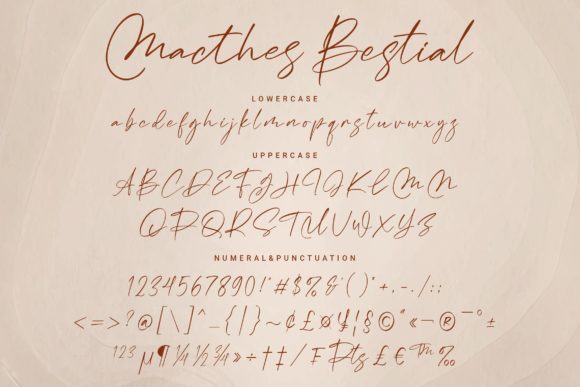 Macthes Bestial
LOWERCASE
abcdefghijklmnopqrstuvwxyz
UPPERCASE
ABCDEFGHIJKLMN
OPQRSTUVWXYZ
NUMERAL&PUNCTUATION
1234567890!"#$%&'()*+,-./:;
<=>?@[\]^_{|}~¢£¤¥¦§©ª«¬®¯°±
²³µ¶¼½¾»÷†‡/₣₧£€™‰